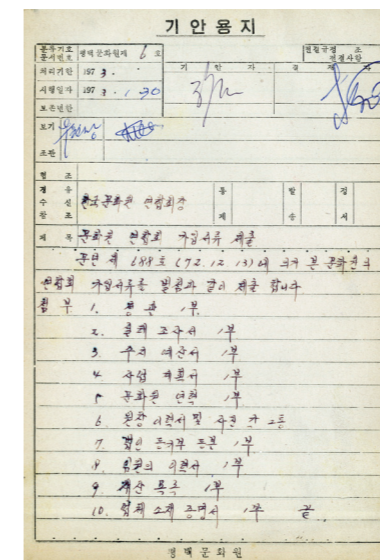 기안용지
분류기호 문서번호 평택문화원제 6호
전결규정 조 전결사항
처리기한 1973. .
기안자 결재자
시행일자 1973. 1. 30
보존년한
보기
조관
협조
경유
수신 한국문화원 연합회장
참조
통제 발송 정서
제목 문화원 연합회 가입서류 제출
문연 제 688호 (72.12.13)에 의거 본 문화원의
연합회 가입서류를 별첨과 같이 제출 합니다
첨부 1. 정관 1부
2. 실태 조사서 1부
3. 수지 예산서 1부
4. 사업 계획서 1부
5 문화원 연혁 1부
6 원장 이력서 및 사진 각 2통
7. 법인 등기부 등본 1부
8. 임원의 이력서 1부
9 재산 목록 1부
10. 업체 소재 증명서 1부 끝
평택문화원